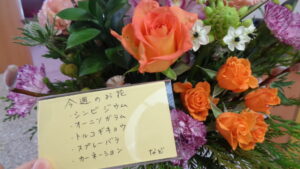 今週のお花
・シンビジウム
・オーニソガラム
・トルコギキョウ
・スプレーバラ
・カーネーション など